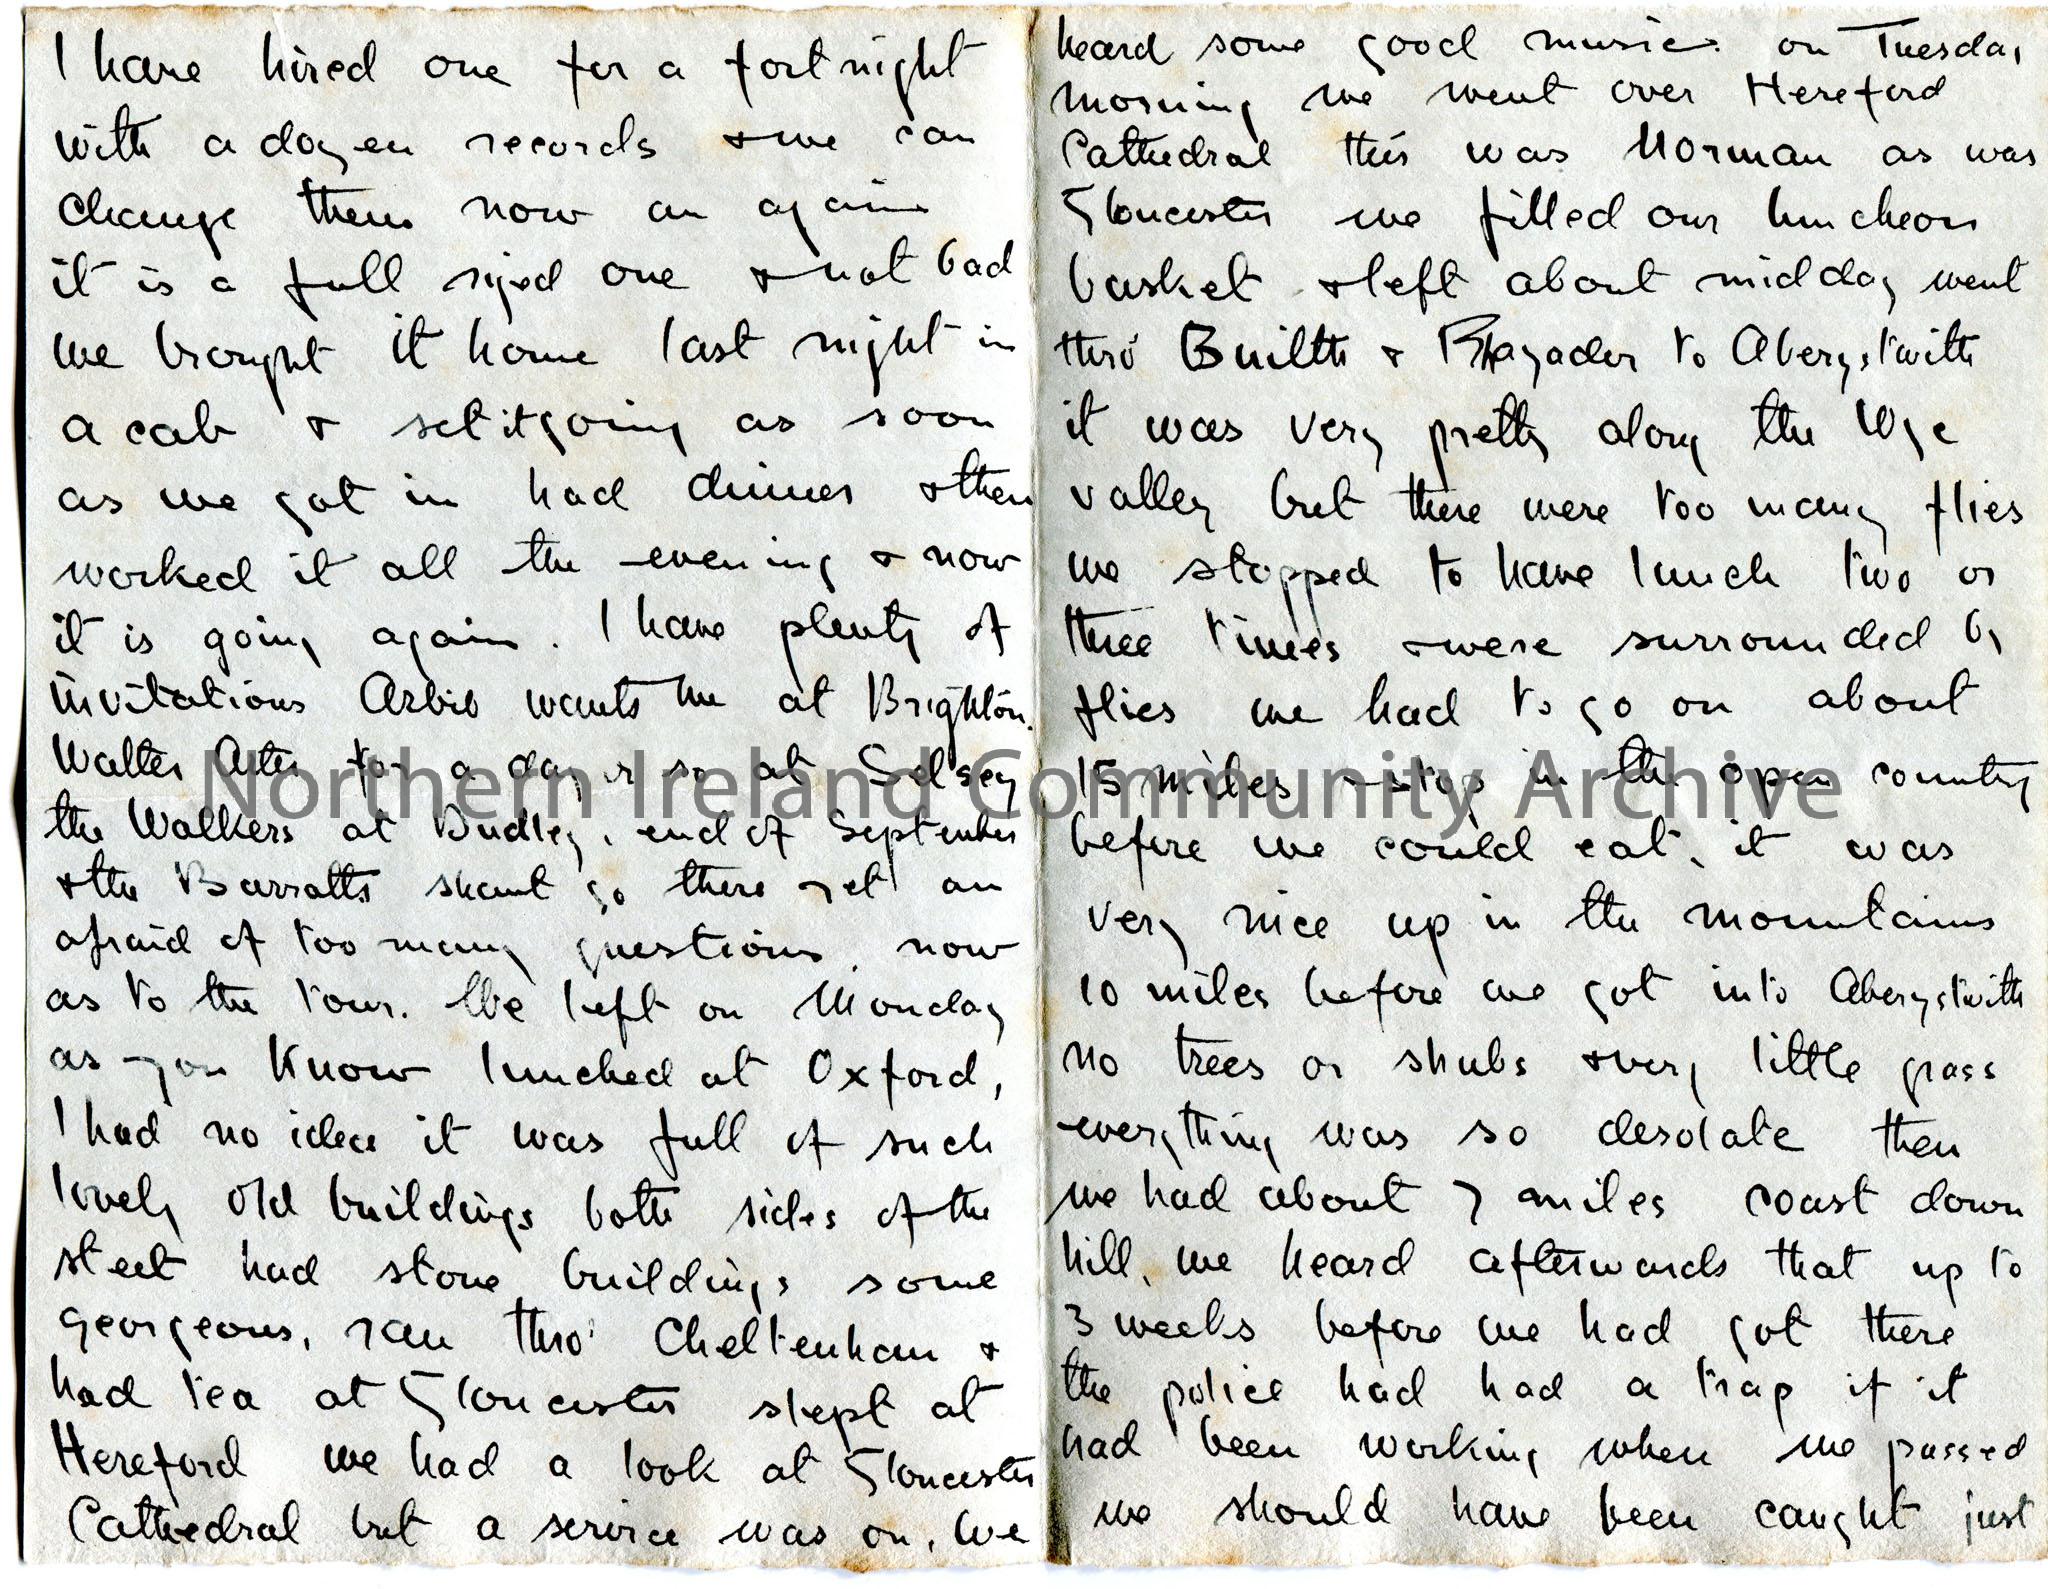 I have hired one for a fortnight
with a dozen records & we can
change them now an again
it is a full sized one & not bad
we brought it home last night in
a cab & set it going as soon
as we got in had dinner & then
worked it all the evening & now
it is going again. I have plenty of
invitations Arbib wants me at Brighton.
Walter for a day or so at Selsey
the Walkers at Budley, end of September
& the Barratts shant go there yet am
afraid of too many questions. now
as to the tour. We left on Monday
as you know lunched at Oxford,
I had no idea it was full of such
lovely old buildings both sides of the
steet had stone buildings some
georgeous, ran thro' Cheltenham &
had tea at Gloucester slept at
Hereford we had a look at Gloucester
Cathedral but a service was on, We
heard some good music. on Tuesday
morning we went over Hereford
Cathedral this was Norman as was
Gloucester we filled our luncheon
basket & left about midday went
thro' Builth & Rhayader to Aberystwith
it was very pretty along the Wye
valley but there were too many flies
we stopped to have lunch two or
three times & were surrounded by
flies we had to go on about
15 miles & stop in the open country
before we could eat, it was
very nice up in the mountains
10 miles before we got into Aberystwith
no trees or shubs & very little grass
everything was so desolate then
we had about 7 miles coast down
hill, we heard afterwards that up to
3 weeks before we had got there
the police had had a trap if it
had been working when we passed
we should have been caught just
Northern Ireland Community Archive